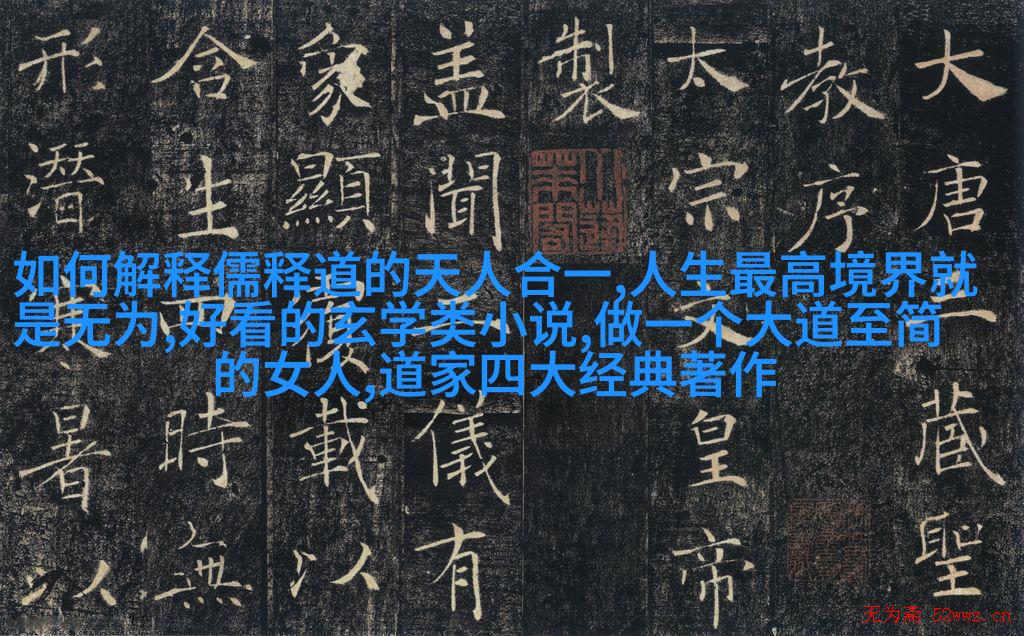 大唐三蔵聖
教序
太宗文皇帝
製
盖聞二儀有
象顯覆載以
含生四時無
形潛寒暑以
如何解释儒释道的天人合一,人生最高境界就
是无为,好看的玄学类小说,做一个大道至简
的女人,道家四大经典著作
无为斋 52wwz.cn